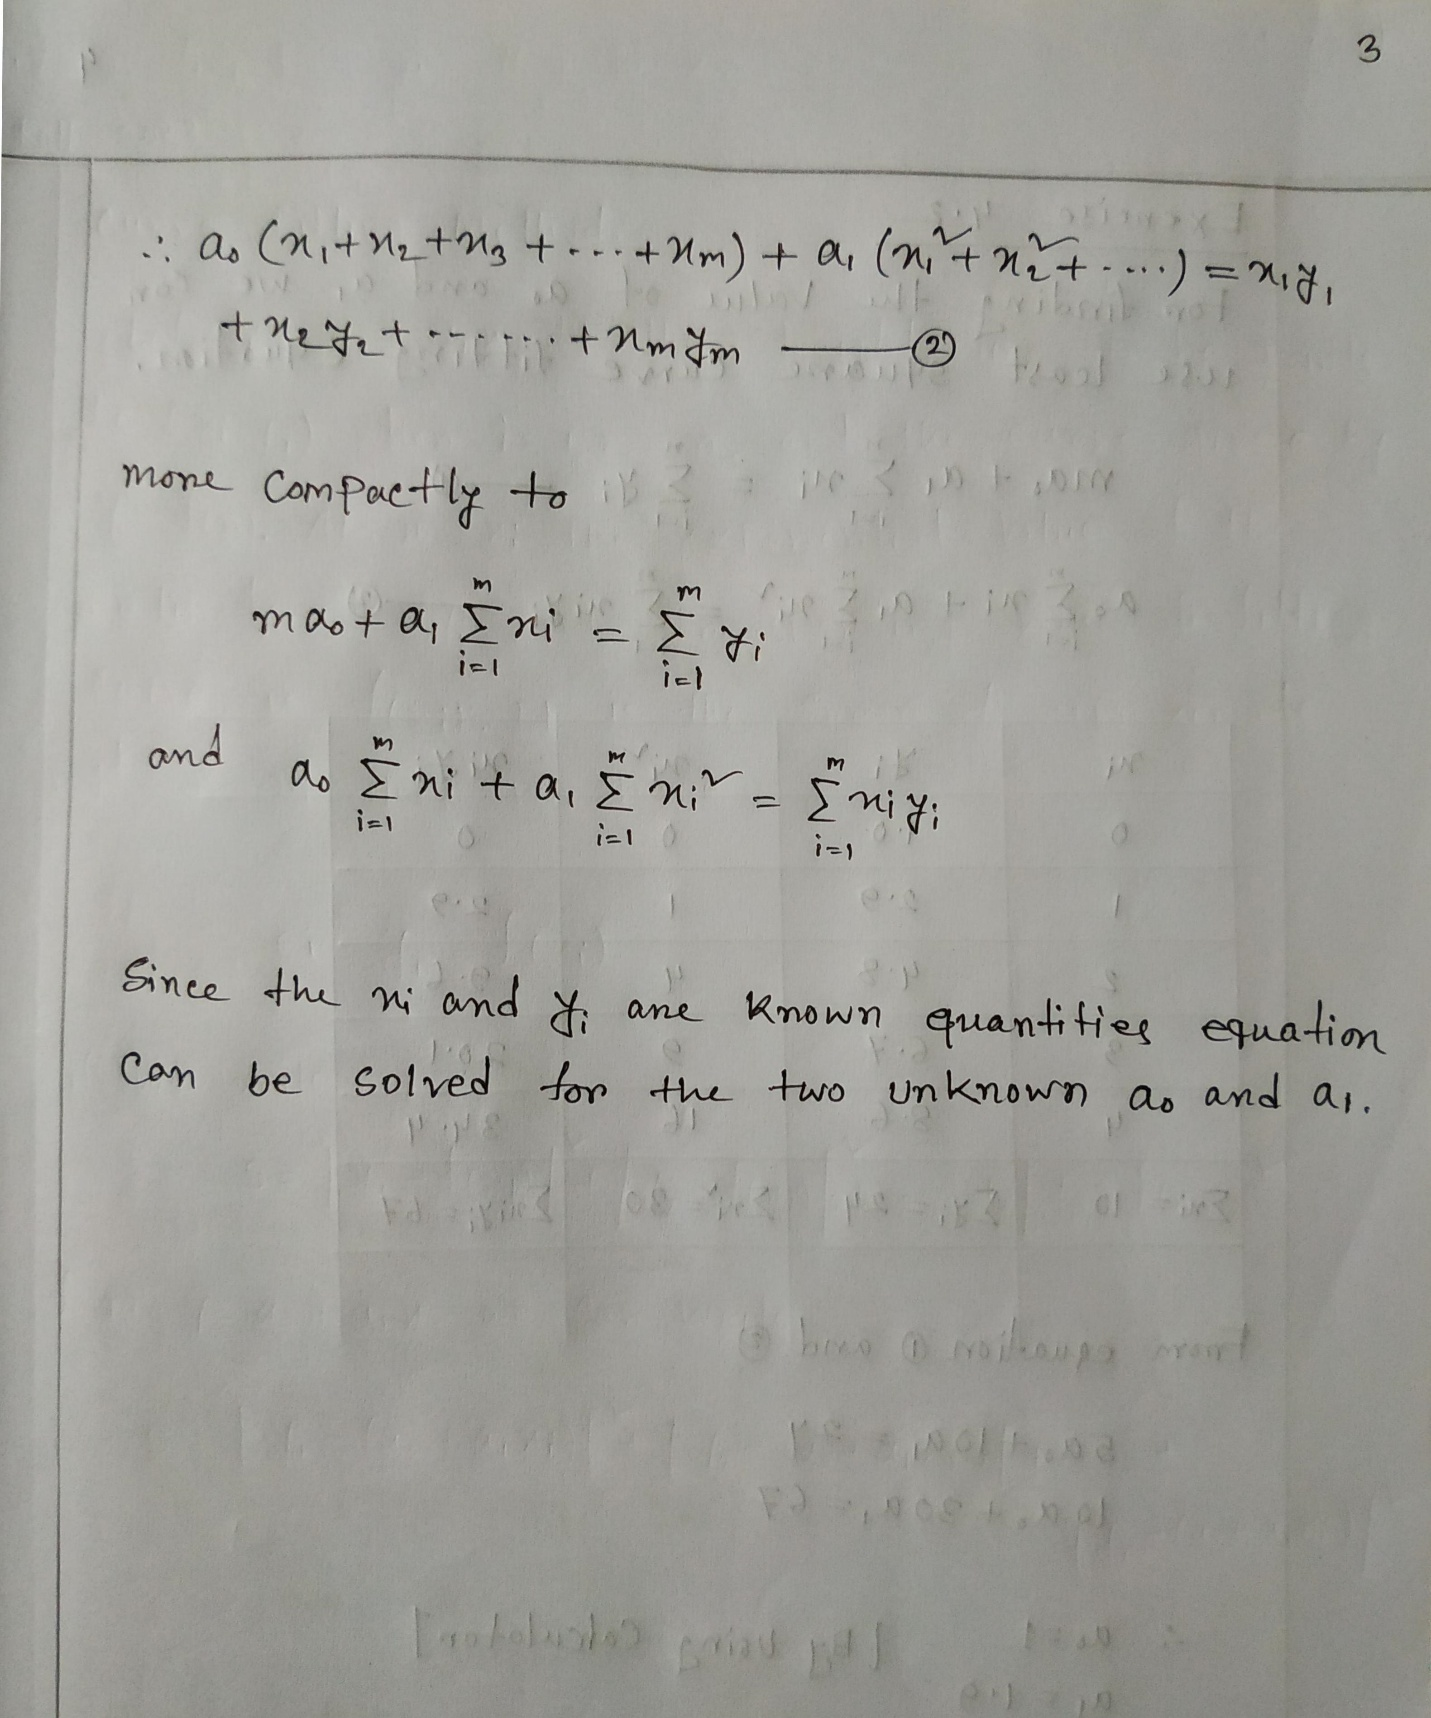 3
∴ a₀ (x₁+x₂+x₃ + ... +xₘ) + a₁ (x₁²+ x₂²+ ....) = x₁y₁
+ x₂y₂ + ....... + xₘyₘ —— ②
more compactly to
ma₀ + a₁ Σᵢ₌₁ᵐ xᵢ = Σᵢ₌₁ᵐ yᵢ
and a₀ Σᵢ₌₁ᵐ xᵢ + a₁ Σᵢ₌₁ᵐ xᵢ² = Σᵢ₌₁ᵐ xᵢyᵢ
Since the xᵢ and yᵢ are known quantities equation
can be solved for the two unknown a₀ and a₁.